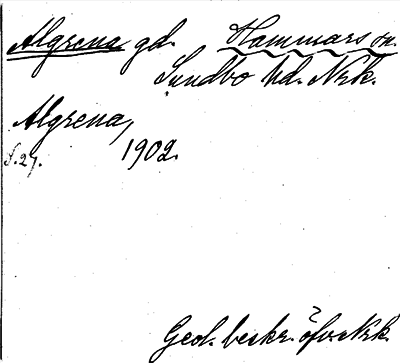 Algrena gd. Hammars sn.
Sundbo hd. Nrk.
Algrena,
s. 27. 1902.
Geol. beskr. öfv. Nrk.